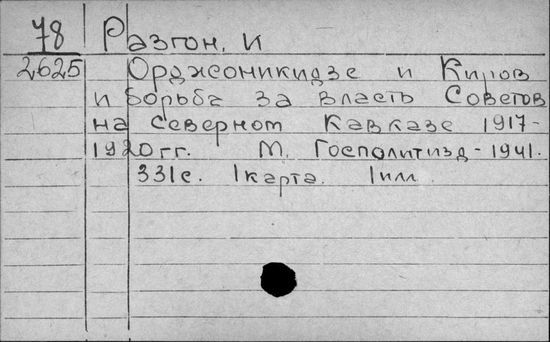 78 Разгон, И
2625 Орджоникидзе и Киров
и борьба за власть Советов
на северном Кавказе 1917-
1920 гг. М. Госполитизд-1941.
331с. 1 карта. 1 илл.